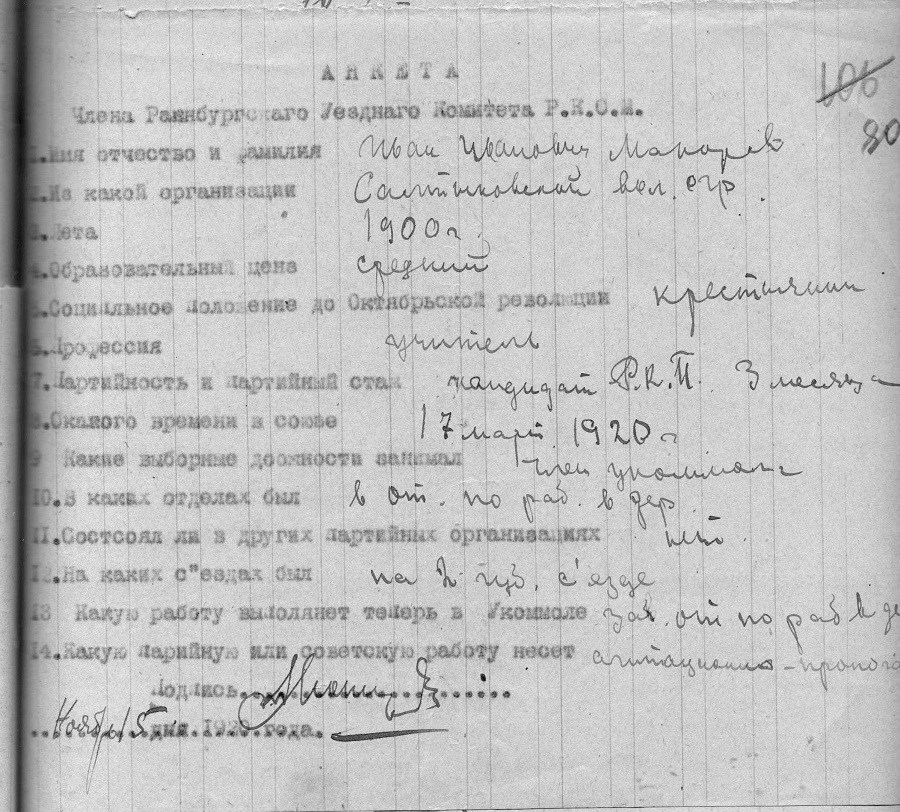 АНКЕТА
106
Члена Раннбургскаго Уезднаго Комитета Р.К.С.М.
80
1.Имя отчество и фамилия Иван Иванович Макарев
2.Из какой организации Салтыковской вол. огр.
3.Лета 1900 г.
4.Образовательный ценз средний
5.Социальное положение до Октябрьской революции крестьянин
6.Профессия учитель
7.Партийность и партийный стаж кандидат Р.К.П. 3 месяца
8.Скакого времени в союзе 17 март 1920 г
9 Какие выборные должности занимал член укоммола
10.В каких отделах был в от. по раб. в дер
11.Состсоял ли в других партийных организациях нет
12.На каких с"ездах был на 2 губ. с'езде
13 Какую работу выполянет теперь в Укоммоле зав. от по раб в де
14.Какую парийную или советскую работу несет агитационно-пропога
Подпись
Ноябрь 5 дня 1920 года.